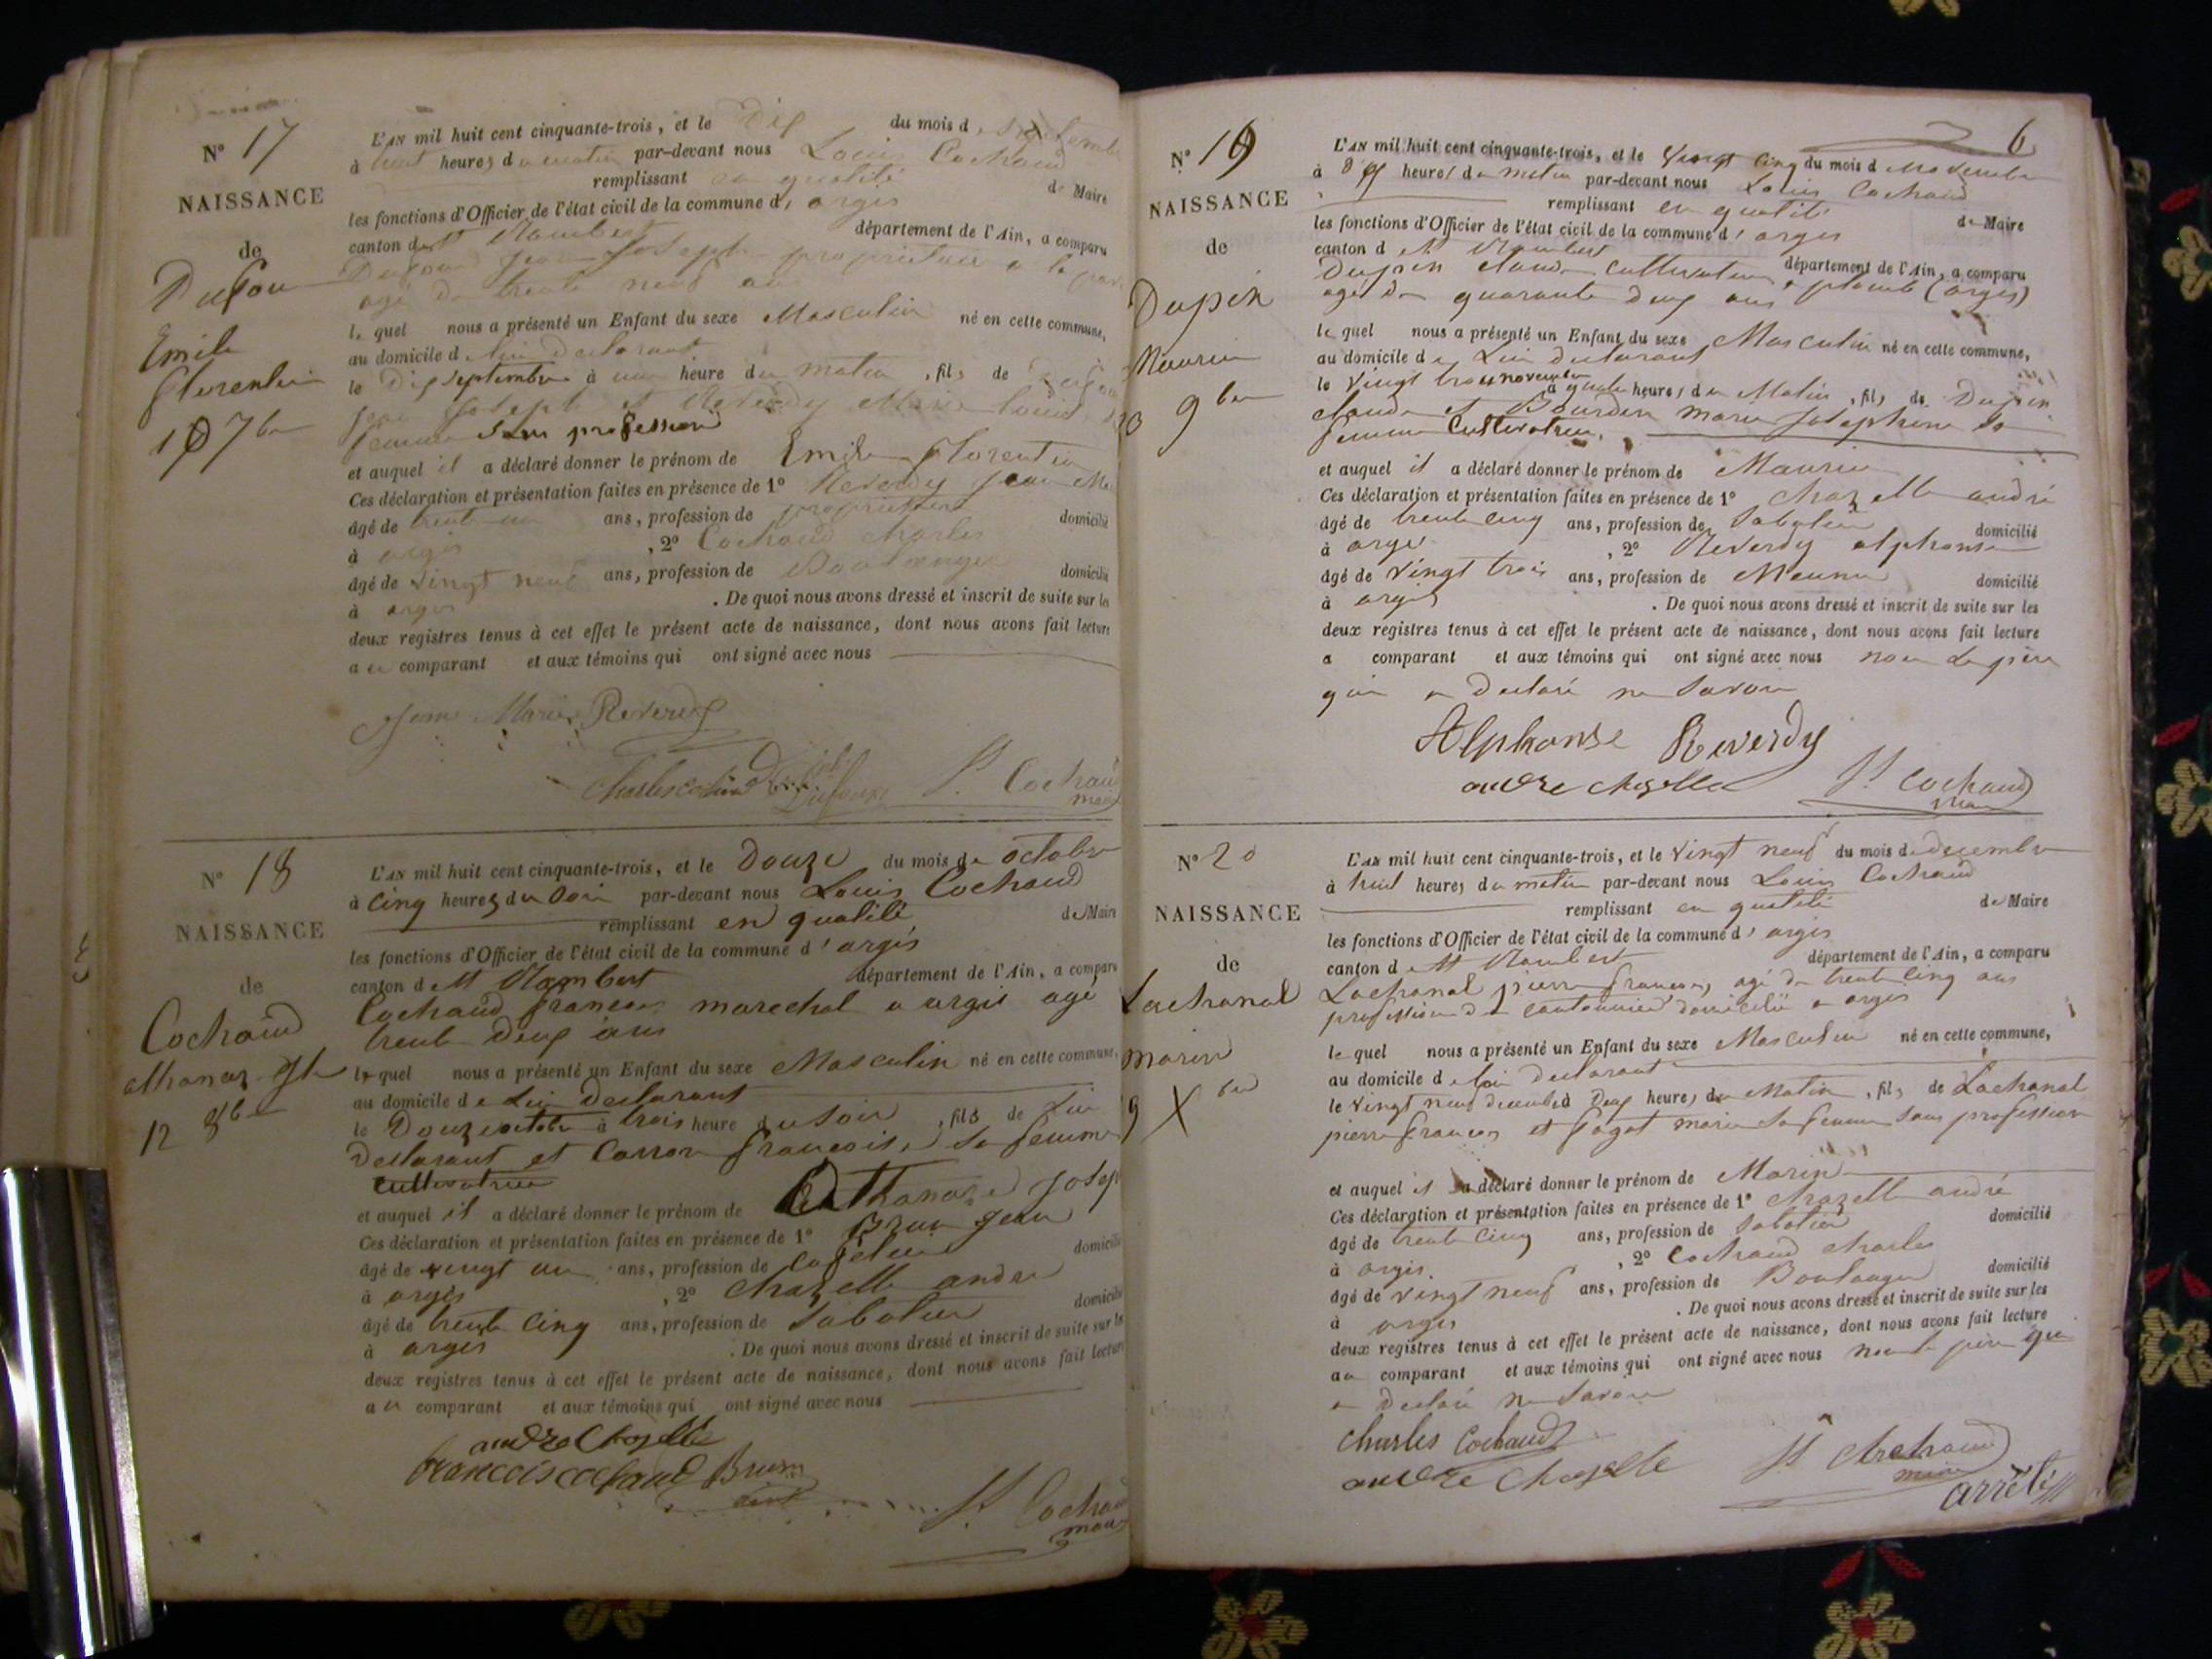 N° 17
NAISSANCE
de
Dufour
Emile
Florentin
10 7bre
L'AN mil huit cent cinquante-trois, et le Dix du mois de septembre
à huit heures du matin par-devant nous Louis Cochaud
remplissant en qualité de Maire
les fonctions d'Officier de l'état civil de la commune d'argis
canton de St Rambert département de l'Ain, a comparu
Dufour jean joseph propriétaire a
agé de trente neuf ans
lequel nous a présenté un Enfant du sexe Masculin né en cette commune,
au domicile de lui declarant
le Dix septembre à une heure du matin, fils de Dufour
jean joseph et Reverdy Marie Louise sa
femme sans profession
et auquel il a déclaré donner le prénom de Emile Florentin
Ces déclaration et présentation faites en présence de 1° Reverdy jean Ma
âgé de trente un ans, profession de propriétaire domicilié
à argis, 2° Cochaud charles
âgé de vingt neuf ans, profession de Boulanger domicilié
à argis. De quoi nous avons dressé et inscrit de suite sur les
deux registres tenus à cet effet le présent acte de naissance, dont nous avons fait lecture
au comparant et aux témoins qui ont signé avec nous
Jean Marie Reverdy
Charles cochaud Dufour Lt Cochaud
maire
N° 18
NAISSANCE
de
Cochaud
athanaz Jh
12 8bre
L'AN mil huit cent cinquante-trois, et le Douze du mois de octobre
à cinq heures du soir par-devant nous Louis Cochaud
remplissant en qualité de Maire
les fonctions d'Officier de l'état civil de la commune d'argis
canton de St Rambert département de l'Ain, a comparu
Cochaud françois marechal a argis agé
trente deux ans
lequel nous a présenté un Enfant du sexe Masculin né en cette commune,
au domicile de lui declarant
le Douze octobre à trois heure du soir, fils de lui
declarant et Carron françoise, sa femme
cultivatrice
et auquel il a déclaré donner le prénom de athanaze josep
Ces déclaration et présentation faites en présence de 1° Brun jean
âgé de vingt un ans, profession de domicilié
à argis, 2° chazelle andré
âgé de trente cinq ans, profession de sabotier domicilié
à argis. De quoi nous avons dressé et inscrit de suite sur les
deux registres tenus à cet effet le présent acte de naissance, dont nous avons fait lecture
au comparant et aux témoins qui ont signé avec nous
andre Chazelle
francois cochaud Brun
Lt Cochaud
maire
6
N° 19
NAISSANCE
de
Dupin
Maurice
3 9bre
L'AN mil huit cent cinquante-trois, et le Vingt cinq du mois d novembre
à dix heures du matin par-devant nous Louis Cochaud
remplissant en qualité de Maire
les fonctions d'Officier de l'état civil de la commune d'argis
canton d St Rambert département de l'Ain, a comparu
Dupin claude cultivateur a plomb (argis)
agé de quarante deux ans
lequel nous a présenté un Enfant du sexe Masculin né en cette commune,
au domicile de lui declarant
le vingt trois novembre à quatre heures du Matin, fils de Dupin
claude et Bourdin marie josephine sa
femme cultivatrice.
et auquel il a déclaré donner le prénom de Maurice
Ces déclaration et présentation faites en présence de 1° chazelle andré
âgé de trente cinq ans, profession de sabotier domicilié
à argis, 2° Reverdy alphonse
âgé de vingt trois ans, profession de Meunier domicilié
à argis. De quoi nous avons dressé et inscrit de suite sur les
deux registres tenus à cet effet le présent acte de naissance, dont nous avons fait lecture
a comparant et aux témoins qui ont signé avec nous non le père
qui a declaré ne savoir
Alphonse Reverdy
andre chazelle Lt Cochaud
maire
N° 20
NAISSANCE
de
Lachanal
marin
9 Xbre
L'AN mil huit cent cinquante-trois, et le vingt neuf du mois de decembre
à huit heures du matin par-devant nous Louis Cochaud
remplissant en qualité de Maire
les fonctions d'Officier de l'état civil de la commune d'argis
canton d St Rambert département de l'Ain, a comparu
Lachanal pierre françois, agé de trente cinq ans
profession de cantonnier domicilié a argis
lequel nous a présenté un Enfant du sexe Masculin né en cette commune,
au domicile de lui declarant
le vingt neuf decembre à Deux heures du Matin, fils de Lachanal
pierre françois et fagot marie sa femme sans profession
et auquel il a déclaré donner le prénom de Marin
Ces déclaration et présentation faites en présence de 1° chazelle andré
âgé de trente cinq ans, profession de sabotier domicilié
à argis, 2° Cochaud charles
âgé de vingt neuf ans, profession de Boulanger domicilié
à argis. De quoi nous avons dressé et inscrit de suite sur les
deux registres tenus à cet effet le présent acte de naissance, dont nous avons fait lecture
au comparant et aux témoins qui ont signé avec nous non le père qui
a declaré ne savoir
Charles Cochaud
andre Chazelle Lt Cochaud
maire
arrêté